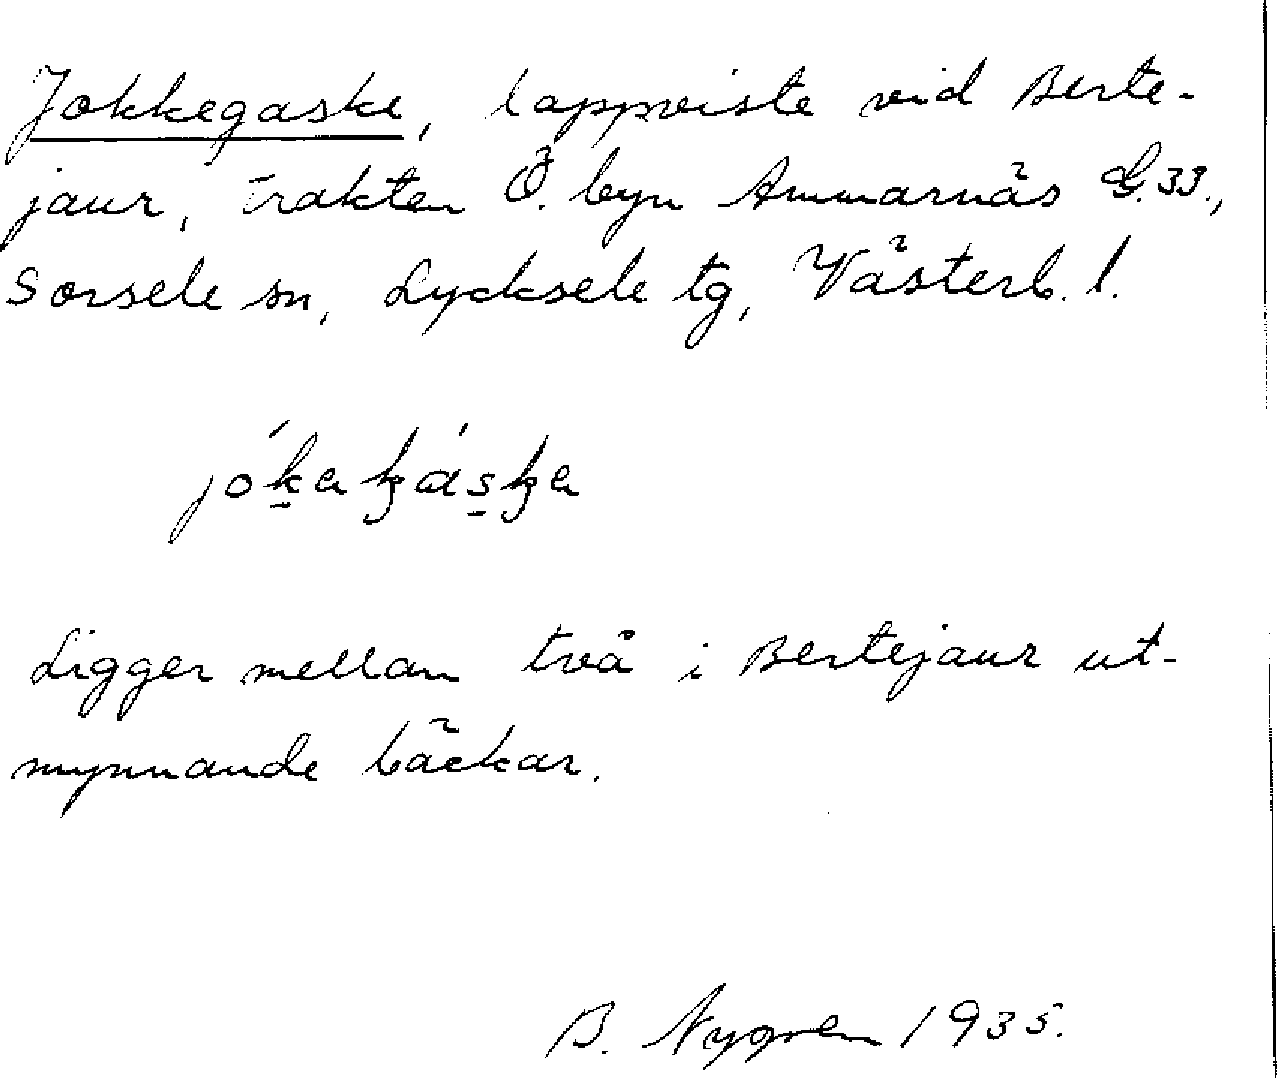 Jokkegaske, lappviste vid Berte-
jaur, trakten Ö. byn Ammarnäs G.33.,
Sorsele sn, Lycksele tg, Västerb. l.
jóḱa káska
Ligger mellan två i Bertejaur ut-
mynnande bäckar.
B. Nygren 1935.